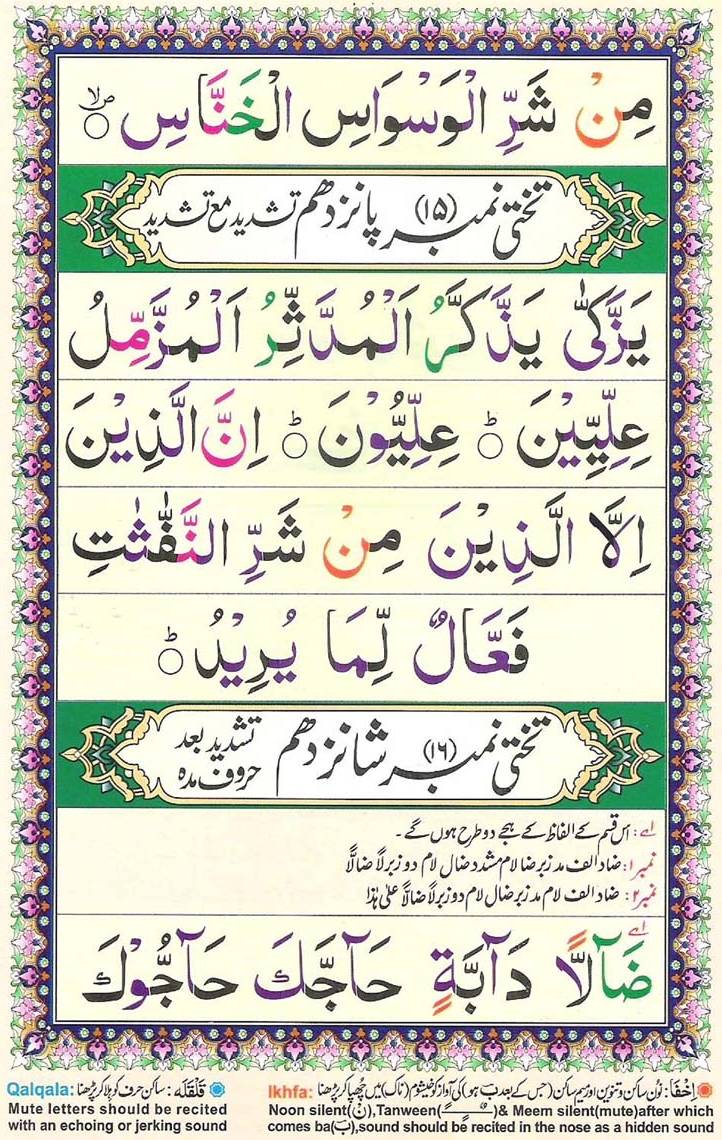 مِنْ شَرِّ الْوَسْوَاسِ الْخَنَّاسِ ۙ
تختی نمبر (۱۵) پانزدھم تشدید مع تشدید
يَزَّكّٰى يَذَّكَّرُ اَلْمُدَّثِّرُ اَلْمُزَّمِّلُ
عِلِّيِّيْنَ ؕ عِلِّيُّوْنَ ؕ اِنَّ الَّذِيْنَ
اِلَّا الَّذِيْنَ مِنْ شَرِّ النَّفّٰثٰتِ
فَعَّالٌ لِّمَا يُرِيْدُ ؕ
تختی نمبر (۱۶) شانزدھم تشدید بعد حروف مدہ
اے: اس قسم کے الفاظ کے ہجے دو طرح ہوں گے ۔
نمبر۱: ضاد الف مد زبر ضا لام مشدد ضال لام دو زبر لاً ضالاًّ
نمبر۲: ضاد الف لام مد زبر ضال لام دو زبر لاً ضالاًّ علیٰ ہذا
ضَآلًّا دَآبَّةٍ حَآجَّكَ حَآجُّوْكَ
اِخفَا: نون ساکن و تنوین اور میم ساکن (جس کے بعد ب ہو) کی آواز کو خیشوم (ناک) میں چھپا کر پڑھنا :Ikhfa
Noon silent(نْ),Tanween(ـًـٍـٌ)& Meem silent(mute)after which
comes ba(ب),sound should be recited in the nose as a hidden sound
قَلْقَلَہ: ساکن حرف کو ہلا کر پڑھنا :Qalqala
Mute letters should be recited
with an echoing or jerking sound